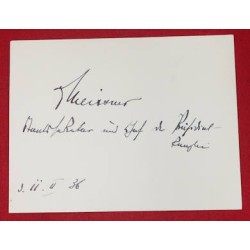 Meissner
Staatssekretär und Chef der Präsidial-
kanzlei
36